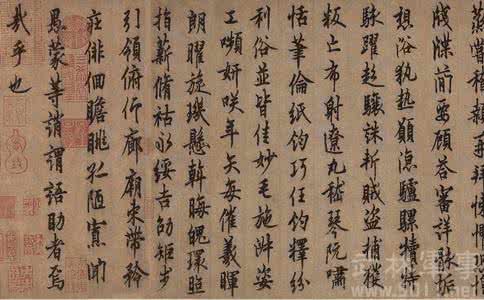 蒸嘗稽顙再拜悚懼恐惶
牋牒簡要顧答審詳骸垢
想浴執熱願涼驢騾犢特
駭躍超驤誅斬賊盜捕獲
叛亡布射遼丸嵇琴阮嘯
恬筆倫紙鈞巧任釣釋紛
利俗並皆佳妙毛施淑姿
工嚬妍咲年矢每催羲暉
朗曜旋璣懸斡晦魄環照
指薪脩祜永綏吉劭矩步
引領俯仰廊廟束帶矜
莊俳佪瞻眺孤陋寡聞
愚蒙等誚謂語助者焉
哉乎也
武林軍事